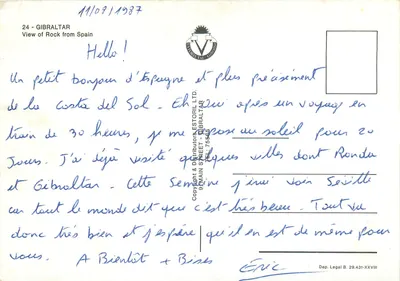 11/07/1987
24 - GIBRALTAR
View of Rock from Spain
Hello!
Un petit bonjour d'Espagne et plus précisément
de la Costa del Sol. Eh oui après un voyage en
train de 30 heures, je me repose au soleil pour 20
Jours. J'ai déjà visité quelques villes dont Ronda
et Gibraltar. Cette semaine j'irai voir Séville
car tout le monde dit que c'est très beau. Tout va
donc très bien et j'espère qu'il en est de même pour
vous. A Bientôt + Bises
Eric
Copyright & Distribution ESTORIL LTD.
MAIN STREET - GIBRALTAR
Dep. Legal B. 29.431-XXVIII